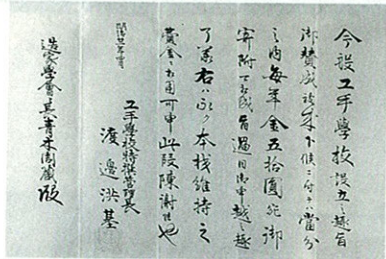 今般工手學校設立之趣旨
御賛成被成下候ニ付テハ當分
之内毎年金五拾圓宛御
寄附下被成旨過日御申越之趣
了承右ハ永ク本校維持之
費金ニ相用可申此段陳謝仕也
明治廿年
工手學校特撰管理長
渡邊洪基
造家學會
殿